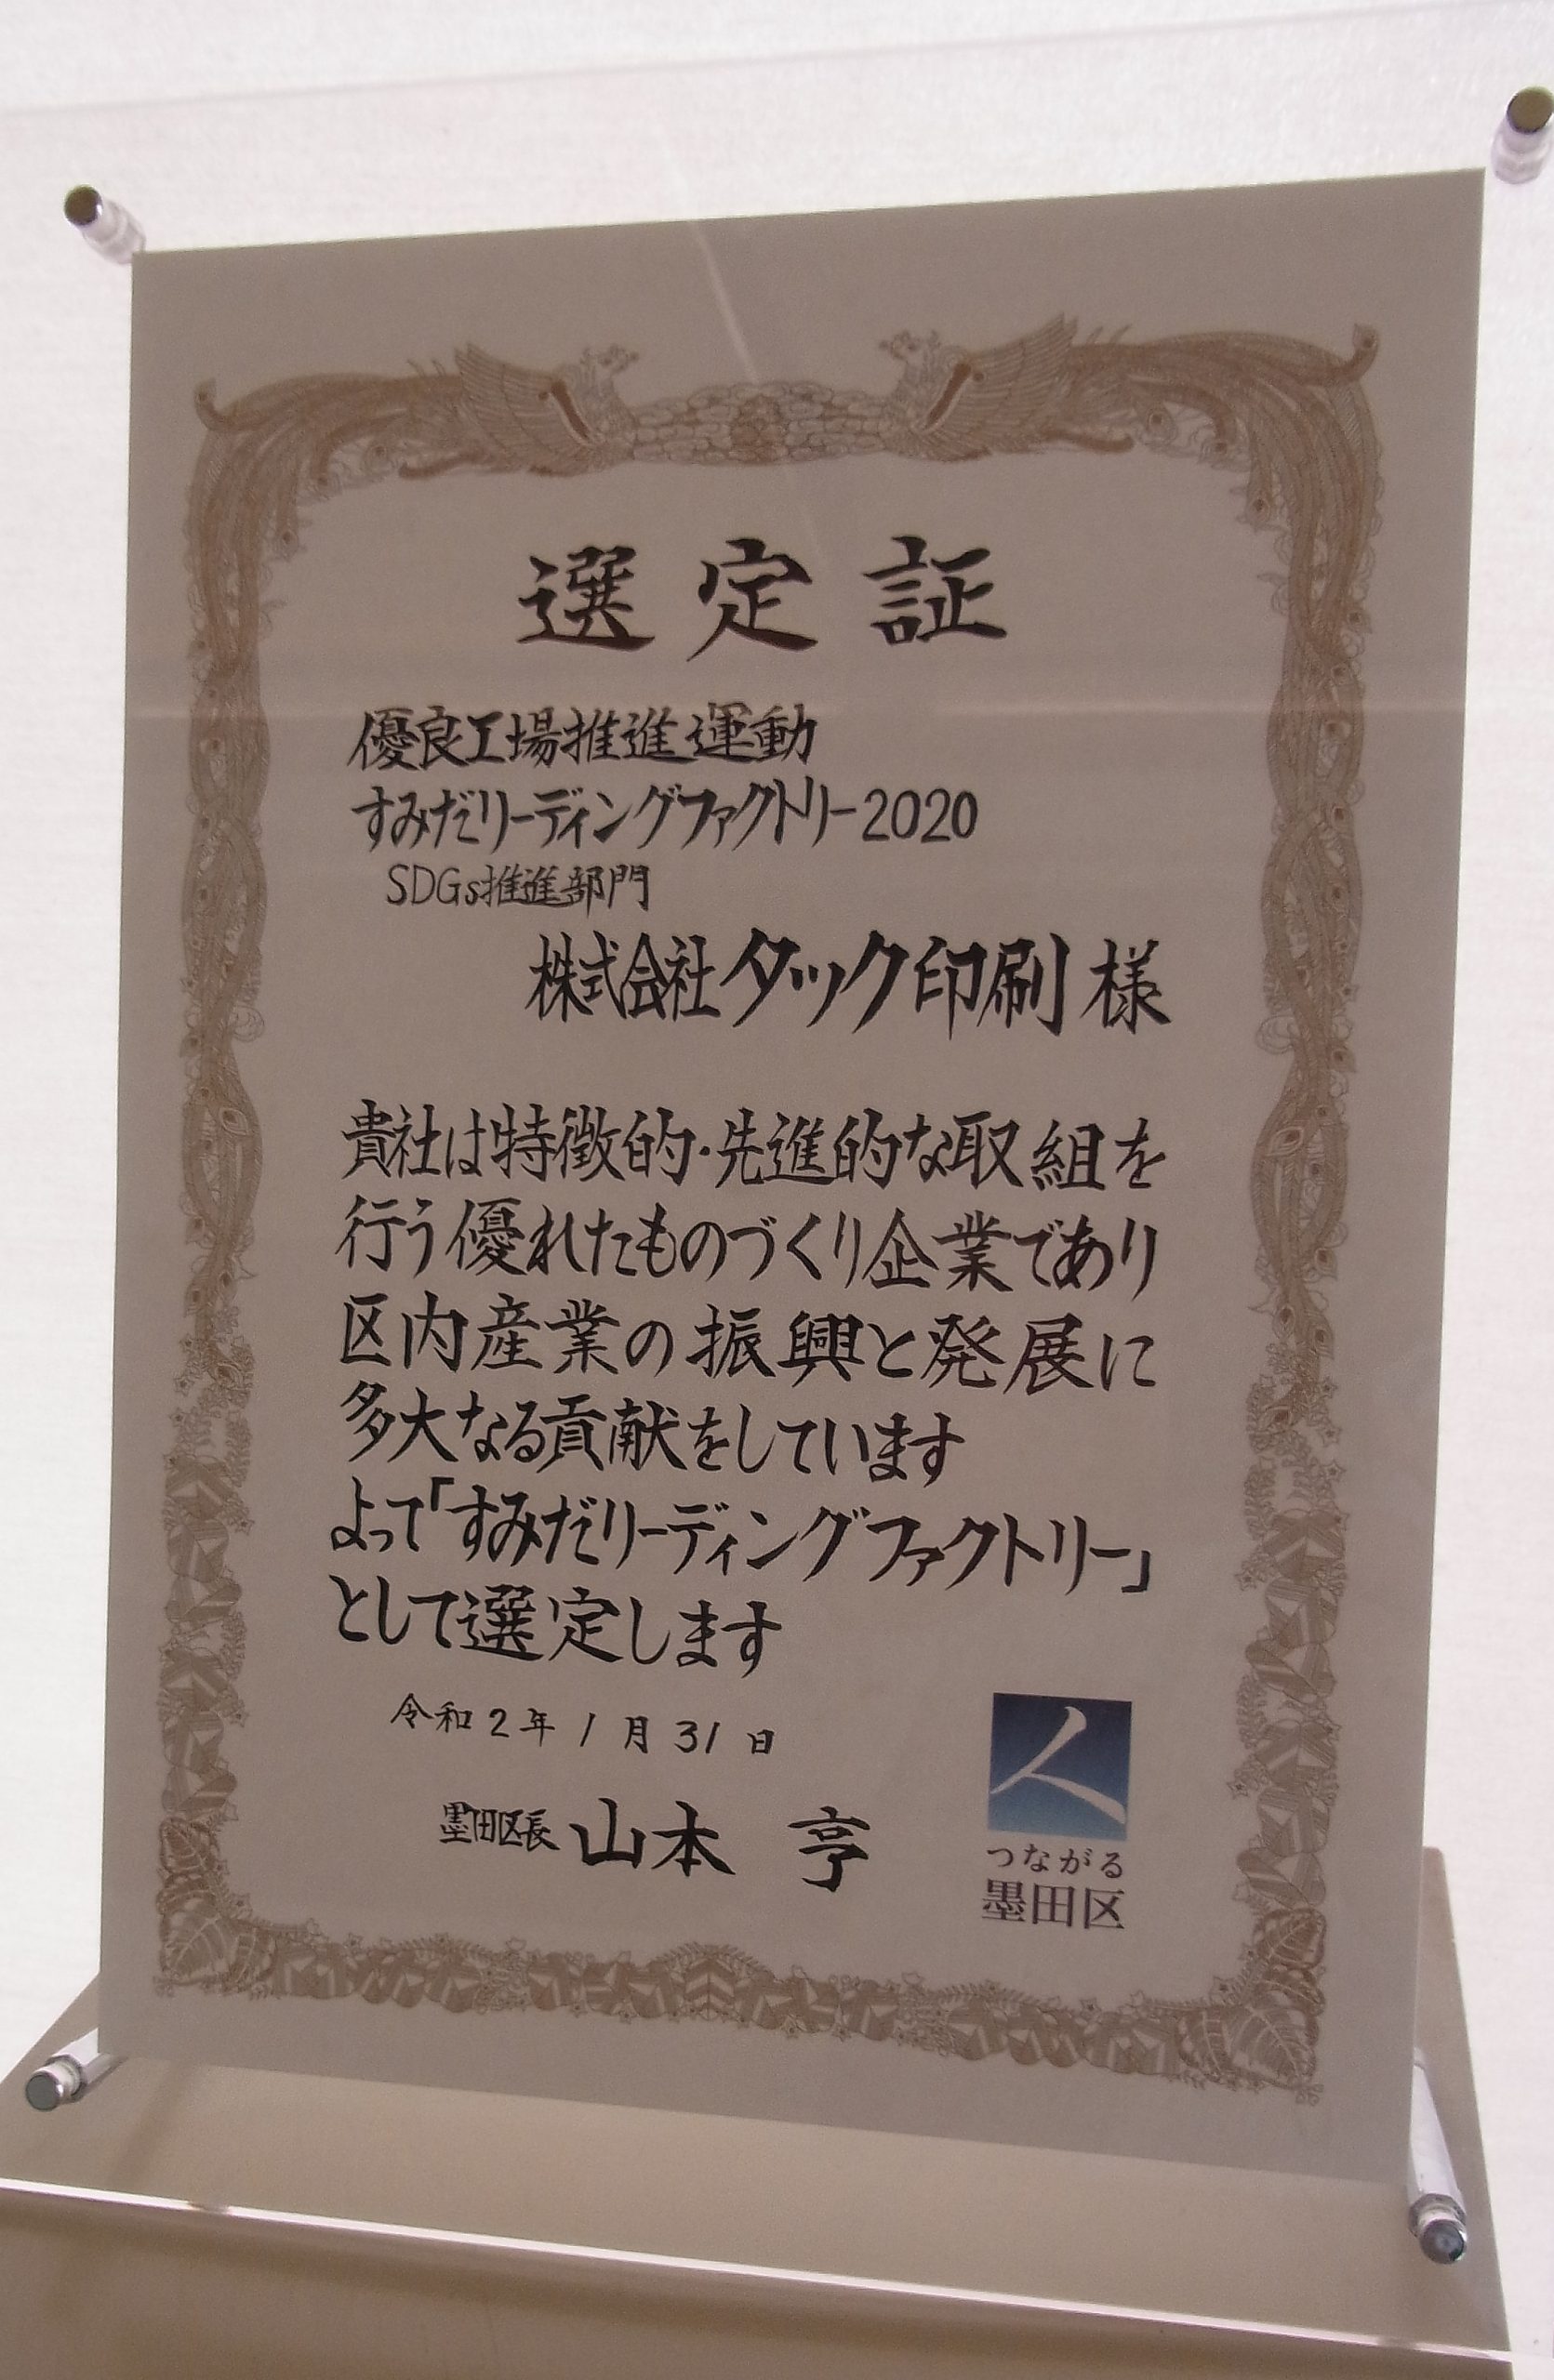 選定証
優良工場推進運動
すみだリーディングファクトリー2020
SDGs推進部門
株式会社タック印刷 様
貴社は特徴的・先進的な取組を
行う優れたものづくり企業であり
区内産業の振興と発展に
多大なる貢献をしています
よって「すみだリーディングファクトリー」
として選定します
令和2年1月31日
墨田区長 山本 亨
人
つながる
墨田区